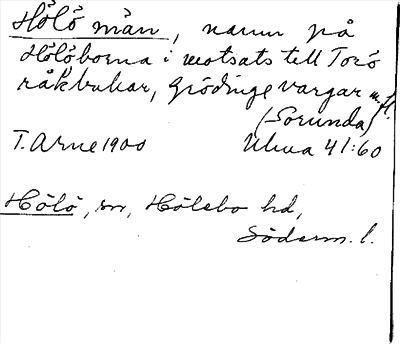 Hölö män, namn på
Hölöborna i motsats till Torö
råkbukar, Grödinge vargar m.fl.
(Sorunda)
T. Arne 1900 Uhua 41:60
Hölö, sn, Hölebo hd,
Söderm. l.